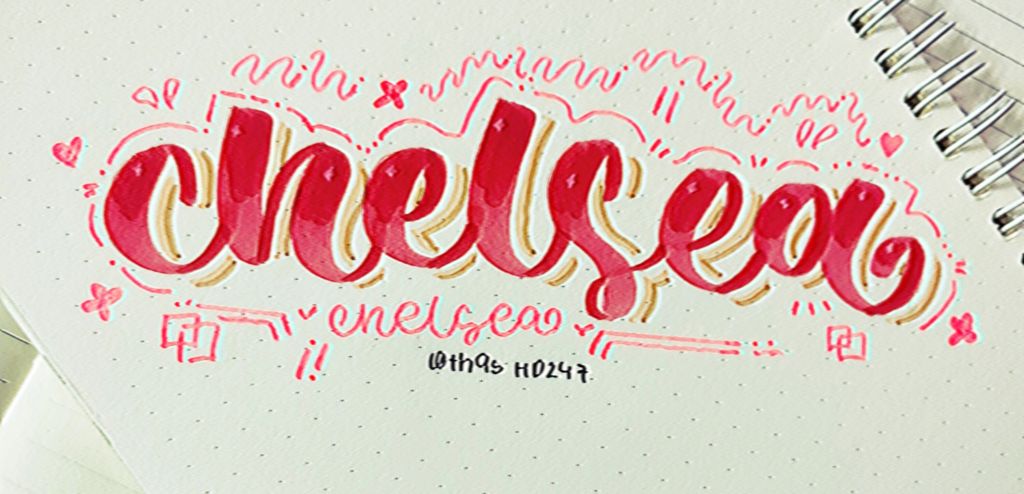 chelsea
chelsea
@thgs HD247